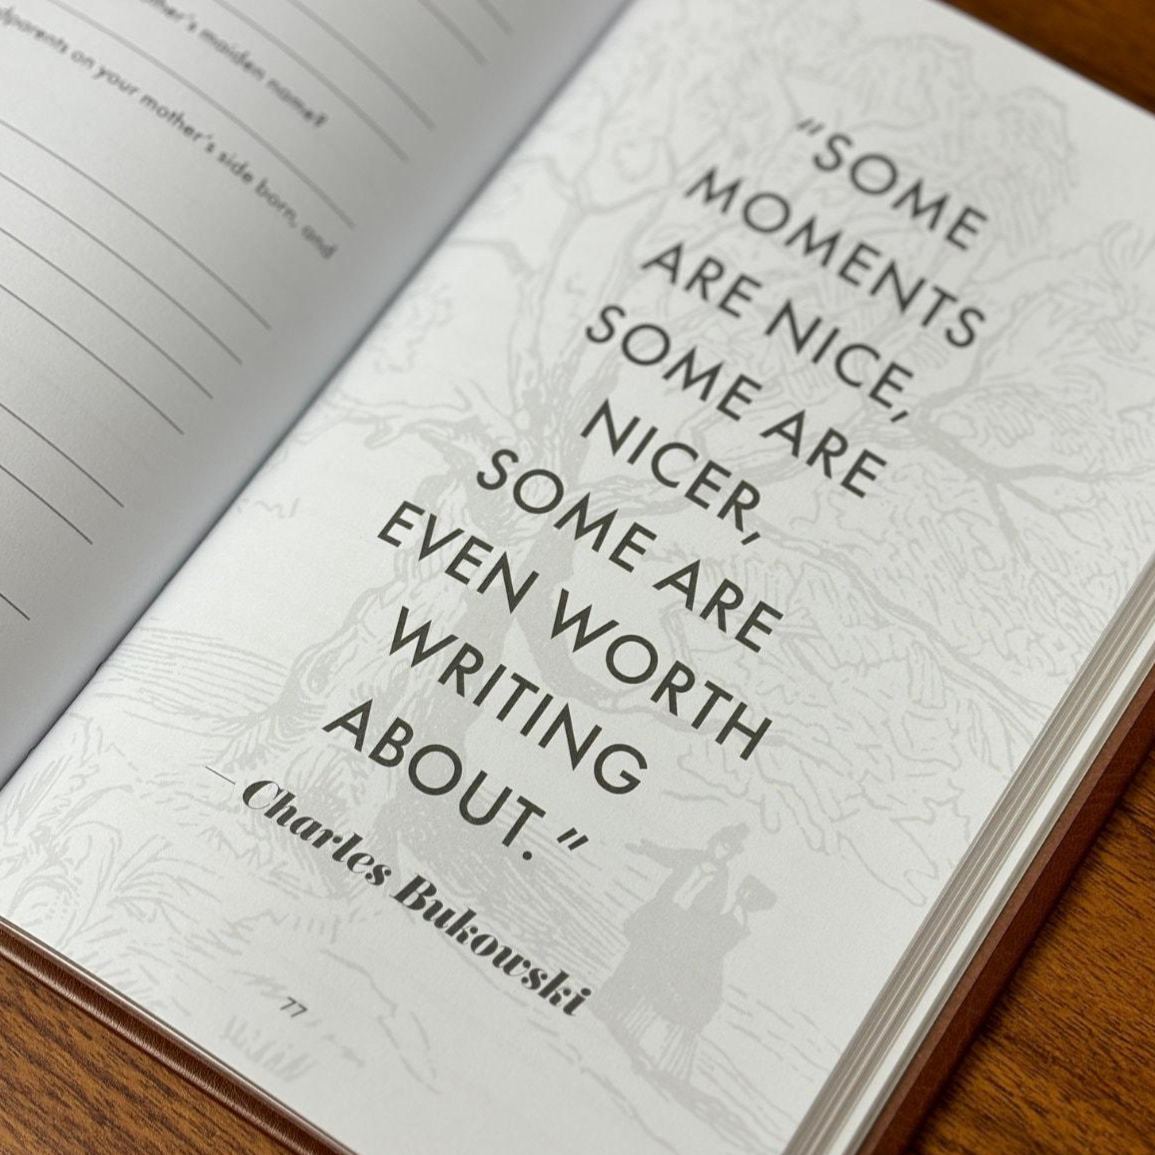 other's maiden name?
parents on your mother's side born, and
“SOME
MOMENTS
ARE NICE,
SOME ARE
NICER,
SOME ARE
EVEN WORTH
WRITING
ABOUT.”
— Charles Bukowski
77